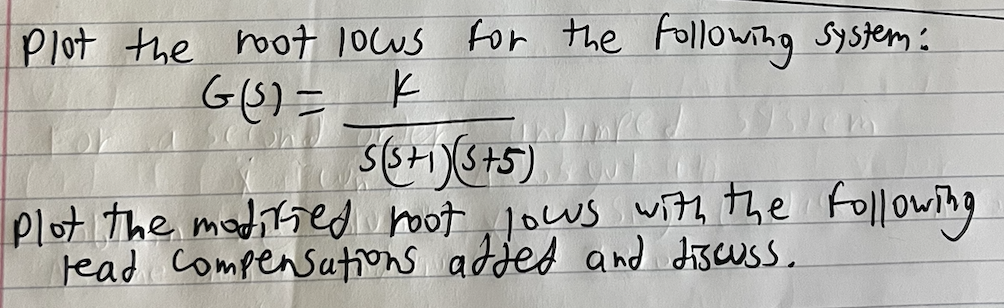 Plot the root locus for the following system:
G(s) = K
s(s+1)(s+5)
Plot the modified root locus with the following
lead compensations added and discuss.